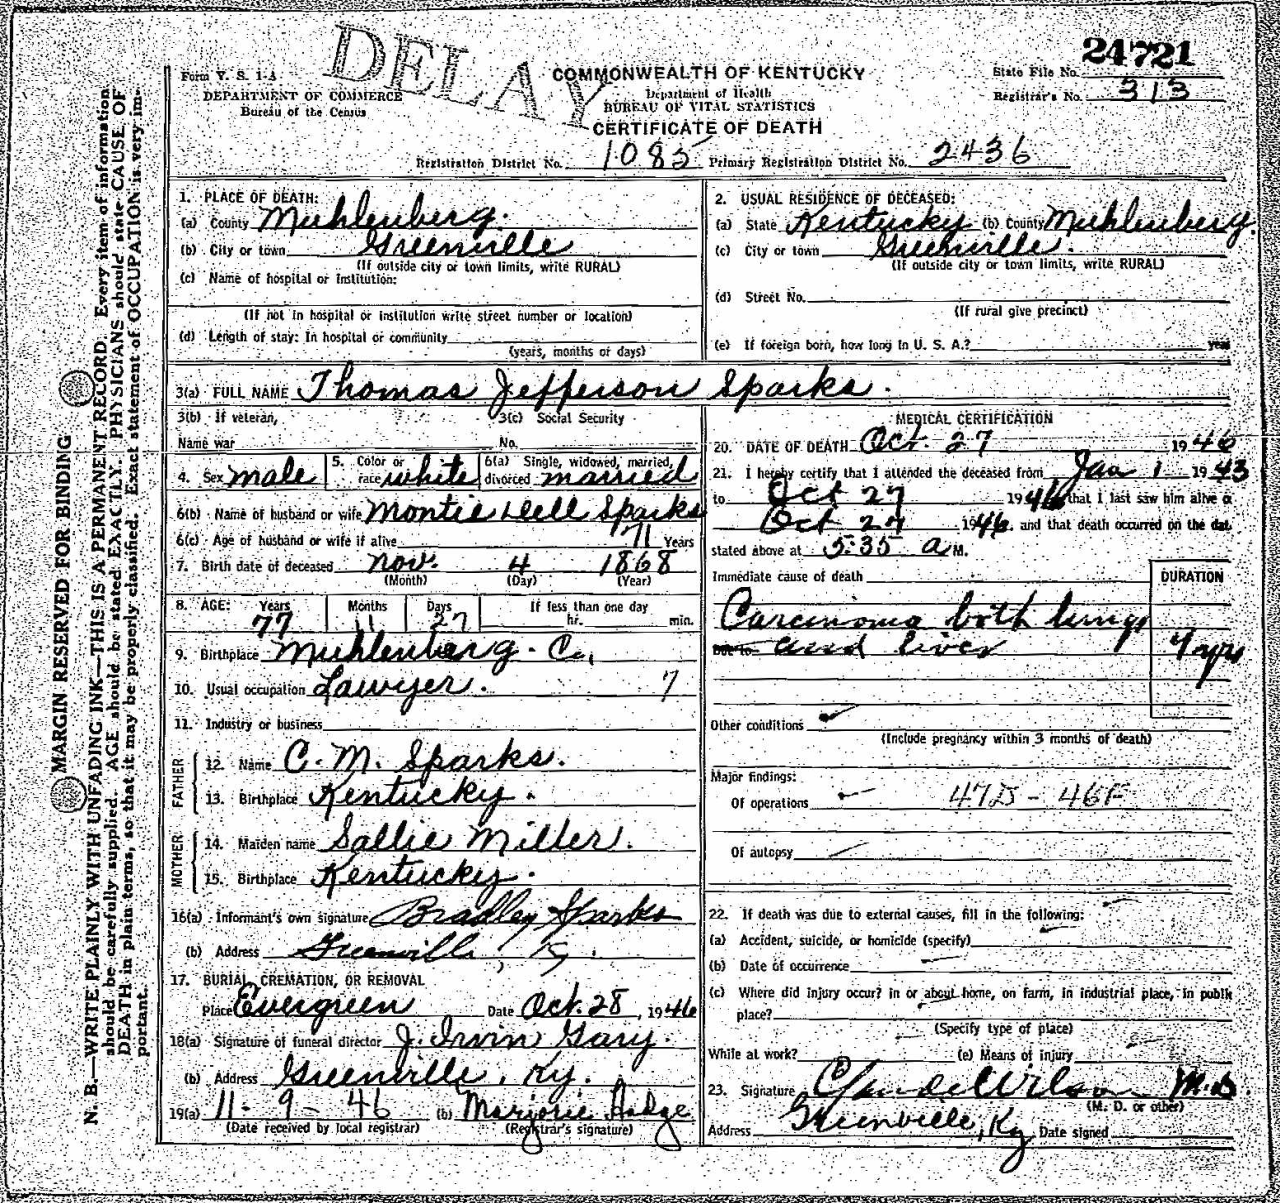 DELAY
24721
Form V. S. 1-A
DEPARTMENT OF COMMERCE
Bureau of the Census
COMMONWEALTH OF KENTUCKY
Department of Health
BUREAU OF VITAL STATISTICS
CERTIFICATE OF DEATH
State File No.
Registrar's No. 313
Registration District No. 1085 Primary Registration District No. 2436
MARGIN RESERVED FOR BINDING
N. B.—WRITE PLAINLY WITH UNFADING INK—THIS IS A PERMANENT RECORD. Every item of information
should be carefully supplied. AGE should be stated EXACTLY. PHYSICIANS should state CAUSE OF
DEATH in plain terms, so that it may be properly classified. Exact statement of OCCUPATION is very im-
portant.
1. PLACE OF DEATH:
(a) County Muhlenberg.
(b) City or town Greenville
(If outside city or town limits, write RURAL)
(c) Name of hospital or institution:
(If not in hospital or institution write street number or location)
(d) Length of stay: In hospital or community
(years, months or days)
2. USUAL RESIDENCE OF DECEASED:
(a) State Kentucky (b) County Muhlenberg.
(c) City or town Greenville.
(If outside city or town limits, write RURAL)
(d) Street No.
(If rural give precinct)
(e) If foreign born, how long in U. S. A.? year
3(a) FULL NAME Thomas Jefferson Sparks.
3(b) If veteran, 3(c) Social Security
Name war No.
4. Sex male 5. Color or race white 6(a) Single, widowed, married, divorced married
6(b) Name of husband or wife Montie Dell Sparks
6(c) Age of husband or wife if alive 71 Years
7. Birth date of deceased Nov. 4 1868
(Month) (Day) (Year)
8. AGE: Years Months Days If less than one day
77 11 27 hr. min.
9. Birthplace Muhlenberg. Co.,
10. Usual occupation Lawyer. 7
11. Industry or business
FATHER
12. Name C. M. Sparks.
13. Birthplace Kentucky.
MOTHER
14. Maiden name Sallie Miller.
15. Birthplace Kentucky.
16(a) Informant's own signature Bradley Sparks
(b) Address Greenville, Ky.
17. BURIAL, CREMATION, OR REMOVAL
Place Evergreen Date Oct. 28, 1946
18(a) Signature of funeral director J. Irvin Gary.
(b) Address Greenville, Ky.
19(a) 11-9-46 (b) Marjorie Hodge
(Date received by local registrar) (Registrar's signature)
MEDICAL CERTIFICATION
20. DATE OF DEATH Oct. 27 1946
21. I hereby certify that I attended the deceased from Jan 1 1943
to Oct 27 1946 that I last saw him alive o
Oct 27 1946, and that death occurred on the dat
stated above at 5:35 a M.
Immediate cause of death DURATION
Carcinoma both lungs
Due to and liver 4 yrs
Other conditions
(Include pregnancy within 3 months of death)
Major findings:
Of operations 47D - 46F
Of autopsy
22. If death was due to external causes, fill in the following:
(a) Accident, suicide, or homicide (specify)
(b) Date of occurrence
(c) Where did injury occur? in or about home, on farm, in industrial place, in public
place?
(Specify type of place)
While at work? (e) Means of injury
23. Signature Claude Wilson M.D.
(M. D. or other)
Address Greenville, Ky Date signed